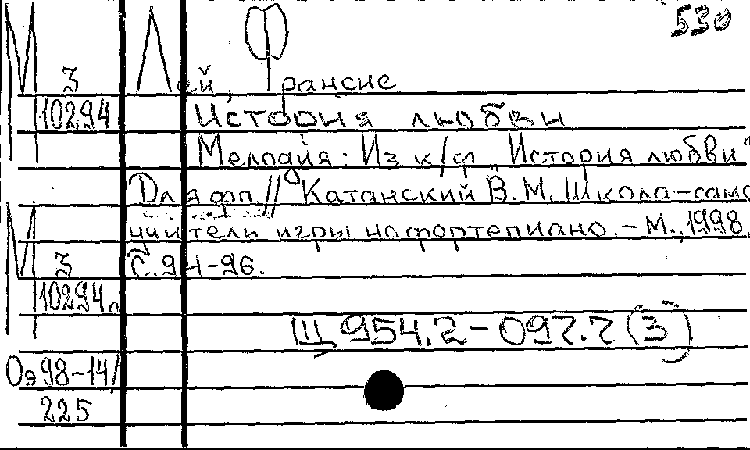 530
М Лей, Франсис
3
10294 История любви
Мелодия: Из к/ф „История любви"
Для фп // Катанский В.М. Школа-само
М учитель игры на фортепиано. - М., 1998.
3 С.94-96.
10294д
Щ 954.2-097.7 (3)
Оэ98-14/
225